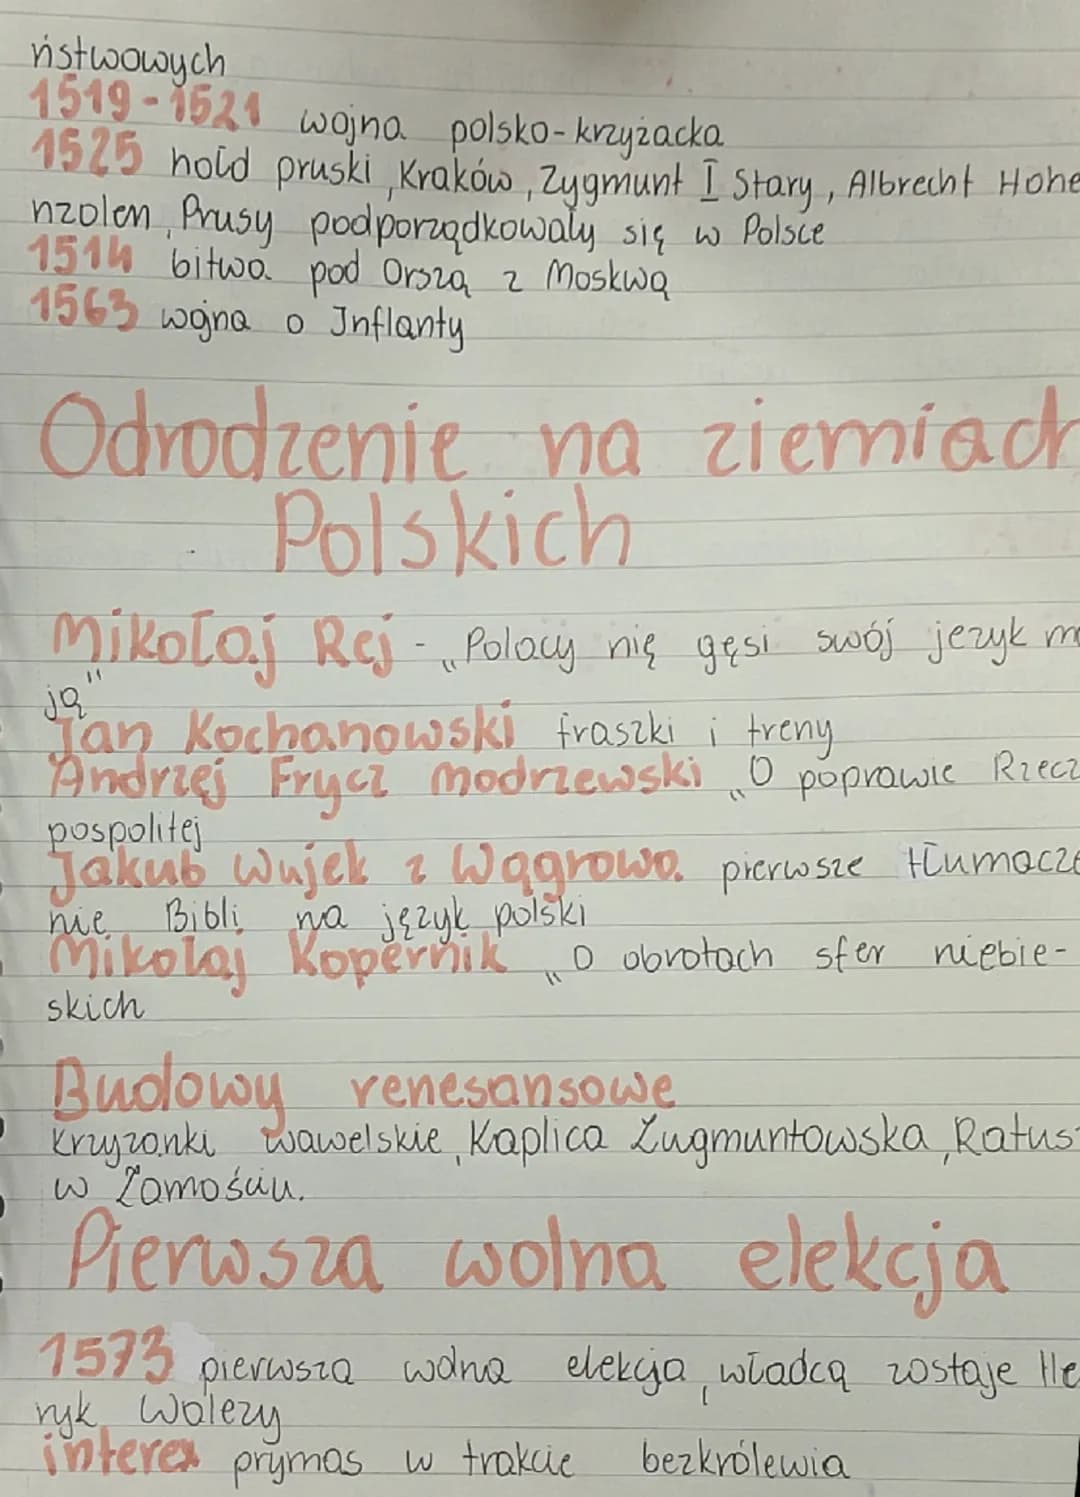 ństwowych
1519-1521 wojna polsko-krzyżacka
1525 hołd pruski, Kraków, Zygmunt I Stary, Albrecht Hohe
nzolen, Prusy podporządkowały się w Polsce
1514 bitwa pod Orszą z Moskwą
1563 wojna o Inflanty
Odrodzenie na ziemiach
Polskich
Mikołaj Rej - „Polacy nię gęsi swój jezyk ma
ją"
Jan Kochanowski fraszki i treny
Andrzej Frycz Modrzewski „O poprawie Rzecz
pospolitej
Jakub Wujek z Wągrowa pierwsze tłumacze
nie Bibli na język polski
Mikołaj Kopernik „O obrotach sfer niebie-
skich
Budowy renesansowe
Kruzanki wawelskie, Kaplica Zugmuntowska, Ratusz
w Zamościu.
Pierwsza wolna elekcja
1573 pierwsza wolna elekcja, władcą zostaje He
ryk Walezy
interex prymas w trakcie bezkrólewia